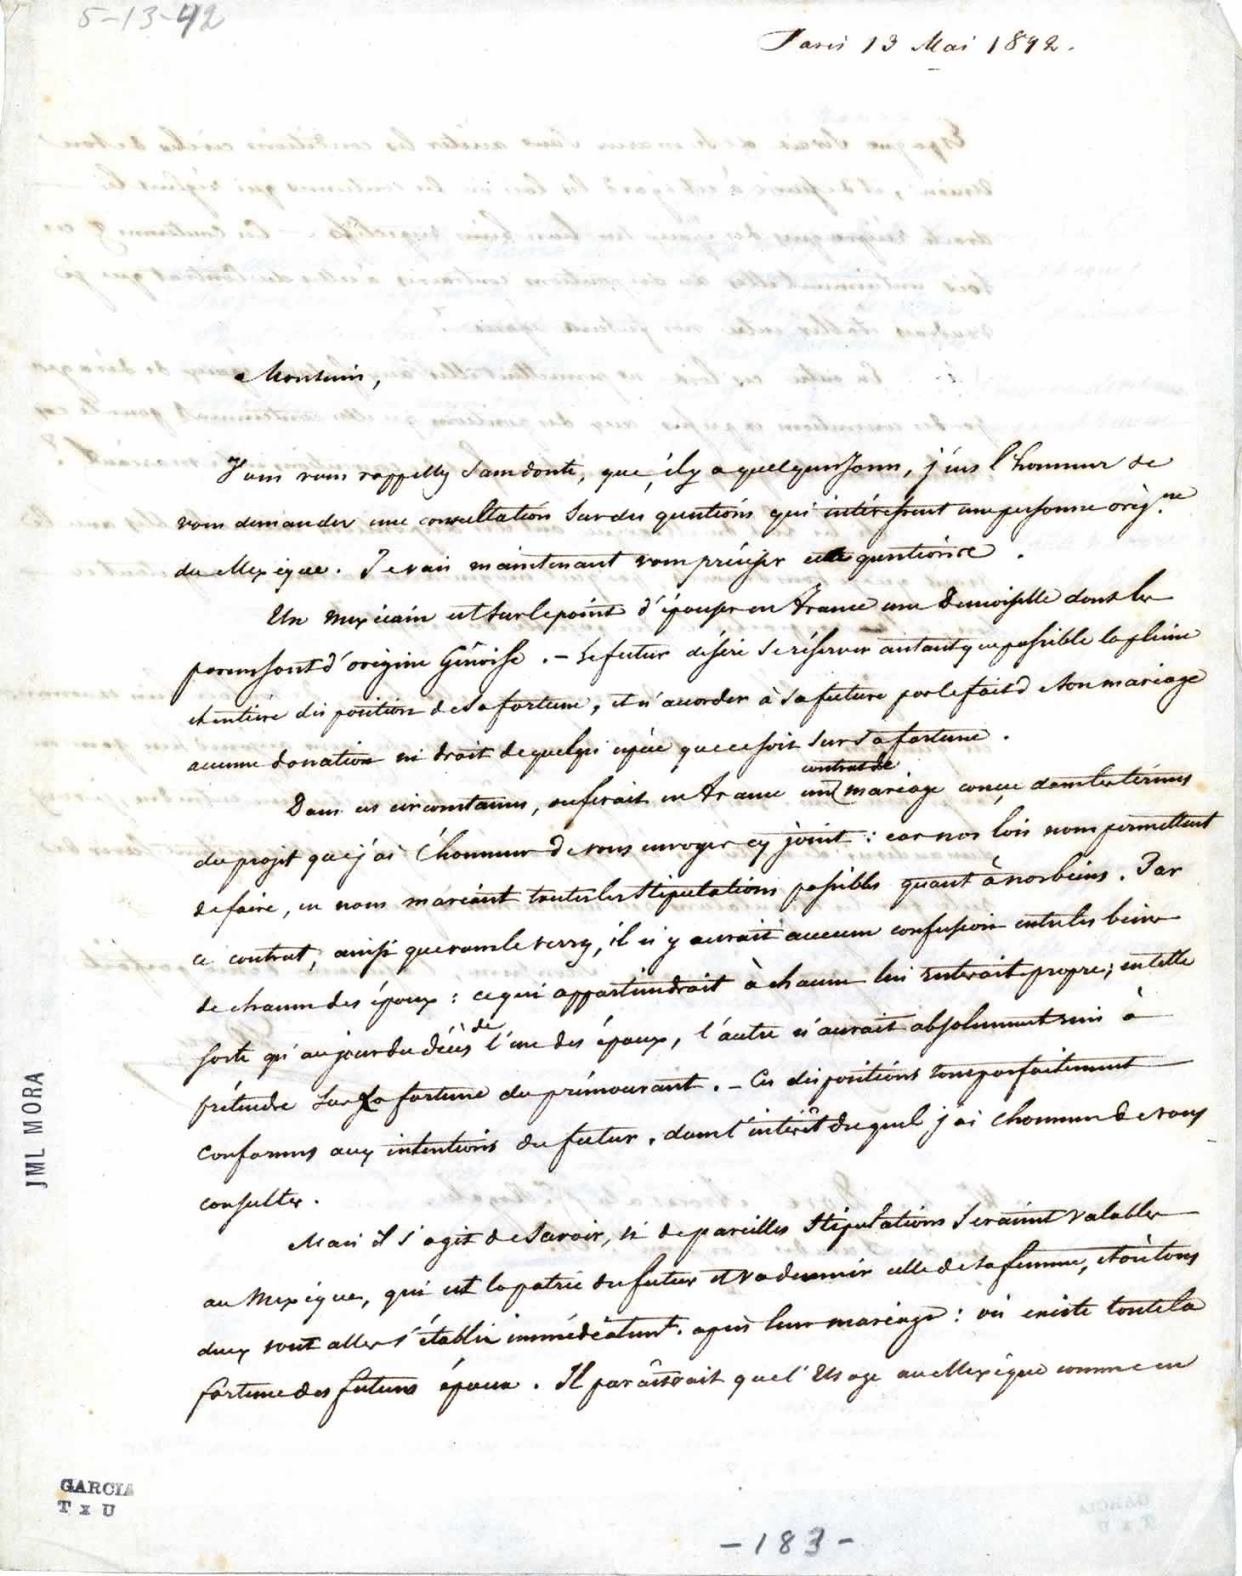 5-13-42
Paris 13 Mai 1842.
Monsieur,
Vous vous rappellez sans doute, que, il y a quelques jours, j'eus l'honneur de
vous demander une consultation sur des questions qui intéressent une personne orig.re
du Mexique. Je vais maintenant vous préciser ces questions.
Un mexicain est sur le point d'épouser en France une Demoiselle dont les
parens sont d'origine Génoise. – Le futur désire se réserver autant que possible la pleine
et entière disposition de sa fortune, et n'accorder à sa future par le fait de son mariage
aucune donation ni droit de quelqu'espèce que ce soit sur sa fortune.
Dans ces circonstances, on ferait en France un contrat de mariage conçu dans les termes
du projet que j'ai l'honneur de vous envoyer cy joint : car nos lois nous permettent
de faire, en nous mariant toutes les stipulations possibles quant à nos biens. Par
ce contrat, ainsi que vous le verrez, il n'y aurait aucune confusion entre les biens
de chacun des époux : ce qui appartiendrait à chacun lui resterait propre; en telle
sorte qu'au jour du décès de l'un des époux, l'autre n'aurait absolument rien à
prétendre sur la fortune du prémourant. – Ces dispositions sont parfaitement
conformes aux intentions du futur, dans l'intérêt duquel j'ai l'honneur de vous
consulter.
Mais il s'agit de savoir, si de pareilles stipulations seraient valables
au Mexique, qui est la patrie du futur et va devenir celle de sa femme, et où tous
deux vont aller s'établir immédiatement après leur mariage : où existe toute la
fortune des futurs époux. Il paraîtrait que l'usage au Mexique comme en
JML MORA
GARCIA
T x U
-183-